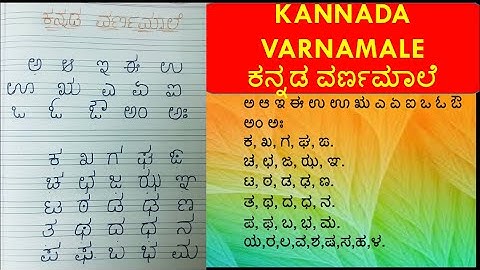 ಕನ್ನಡ ವರ್ಣಮಾಲೆ
ಅ ಆ ಇ ಈ ಉ
ಊ ಋ ಎ ಏ ಐ
ಒ ಓ ಔ ಅಂ ಅಃ
ಕ ಖ ಗ ಘ ಙ
ಚ ಛ ಜ ಝ ಞ
ಟ ಠ ಡ ಢ ಣ
ತ ಥ ದ ಧ ನ
ಪ ಫ ಬ ಭ ಮ
KANNADA
VARNAMALE
ಕನ್ನಡ ವರ್ಣಮಾಲೆ
ಅ ಆ ಇ ಈ ಉ ಊ ಋ ಎ ಏ ಐ ಒ ಓ ಔ
ಅಂ ಅಃ
ಕ, ಖ, ಗ, ಘ, ಙ.
ಚ, ಛ, ಜ, ಝ, ಞ.
ಟ, ಠ, ಡ, ಢ, ಣ.
ತ, ಥ, ದ, ಧ, ನ.
ಪ, ಫ, ಬ, ಭ, ಮ.
ಯ,ರ,ಲ,ವ,ಶ,ಷ,ಸ,ಹ,ಳ.